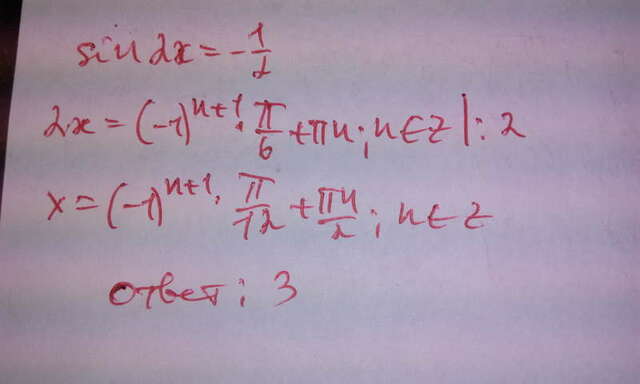 sin 2x = -1/2
2x = (-1)^{n+1} · π/6 + πn; n ∈ Z |: 2
x = (-1)^{n+1} · π/12 + πn/2; n ∈ Z
ответ: 3